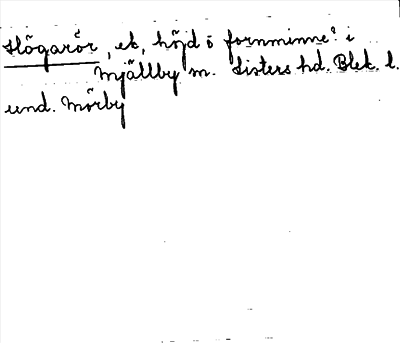 Högarör, ek, höjd o fornminne? i
Mjällby sn. Listers hd. Blek. l.
und. Mörby